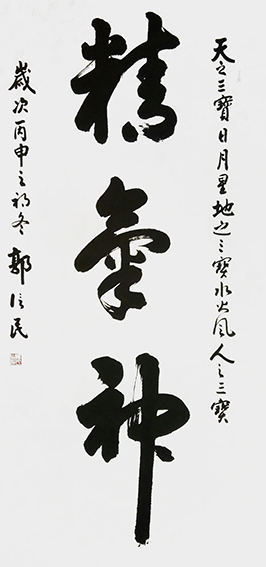 天之三寶日月星地之三寶水火風人之三寶
精氣神
歲次丙申之初冬 郭信民